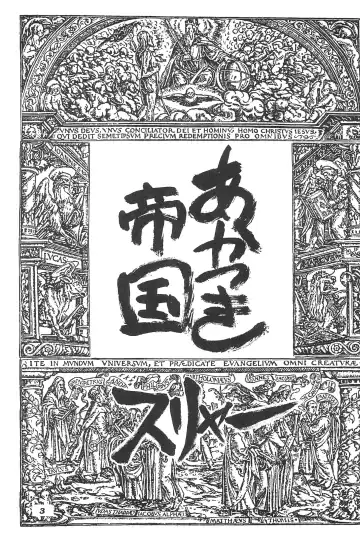 VNVS DEVS, VNVS CONCILIATOR, DEI ET HOMINV̄ HOMO CHRISTVS IESVS,
QVI DEDIT SEMETIPSVM PRECIVM REDEMPTIONIS PRO OMNIBVS
あかつき
帝国
ITE IN MVNDVM VNIVERSVM, ET PRÆDICATE EVANGELIVM OMNI CREATVRÆ
スリャー
MATTHÆVS
3